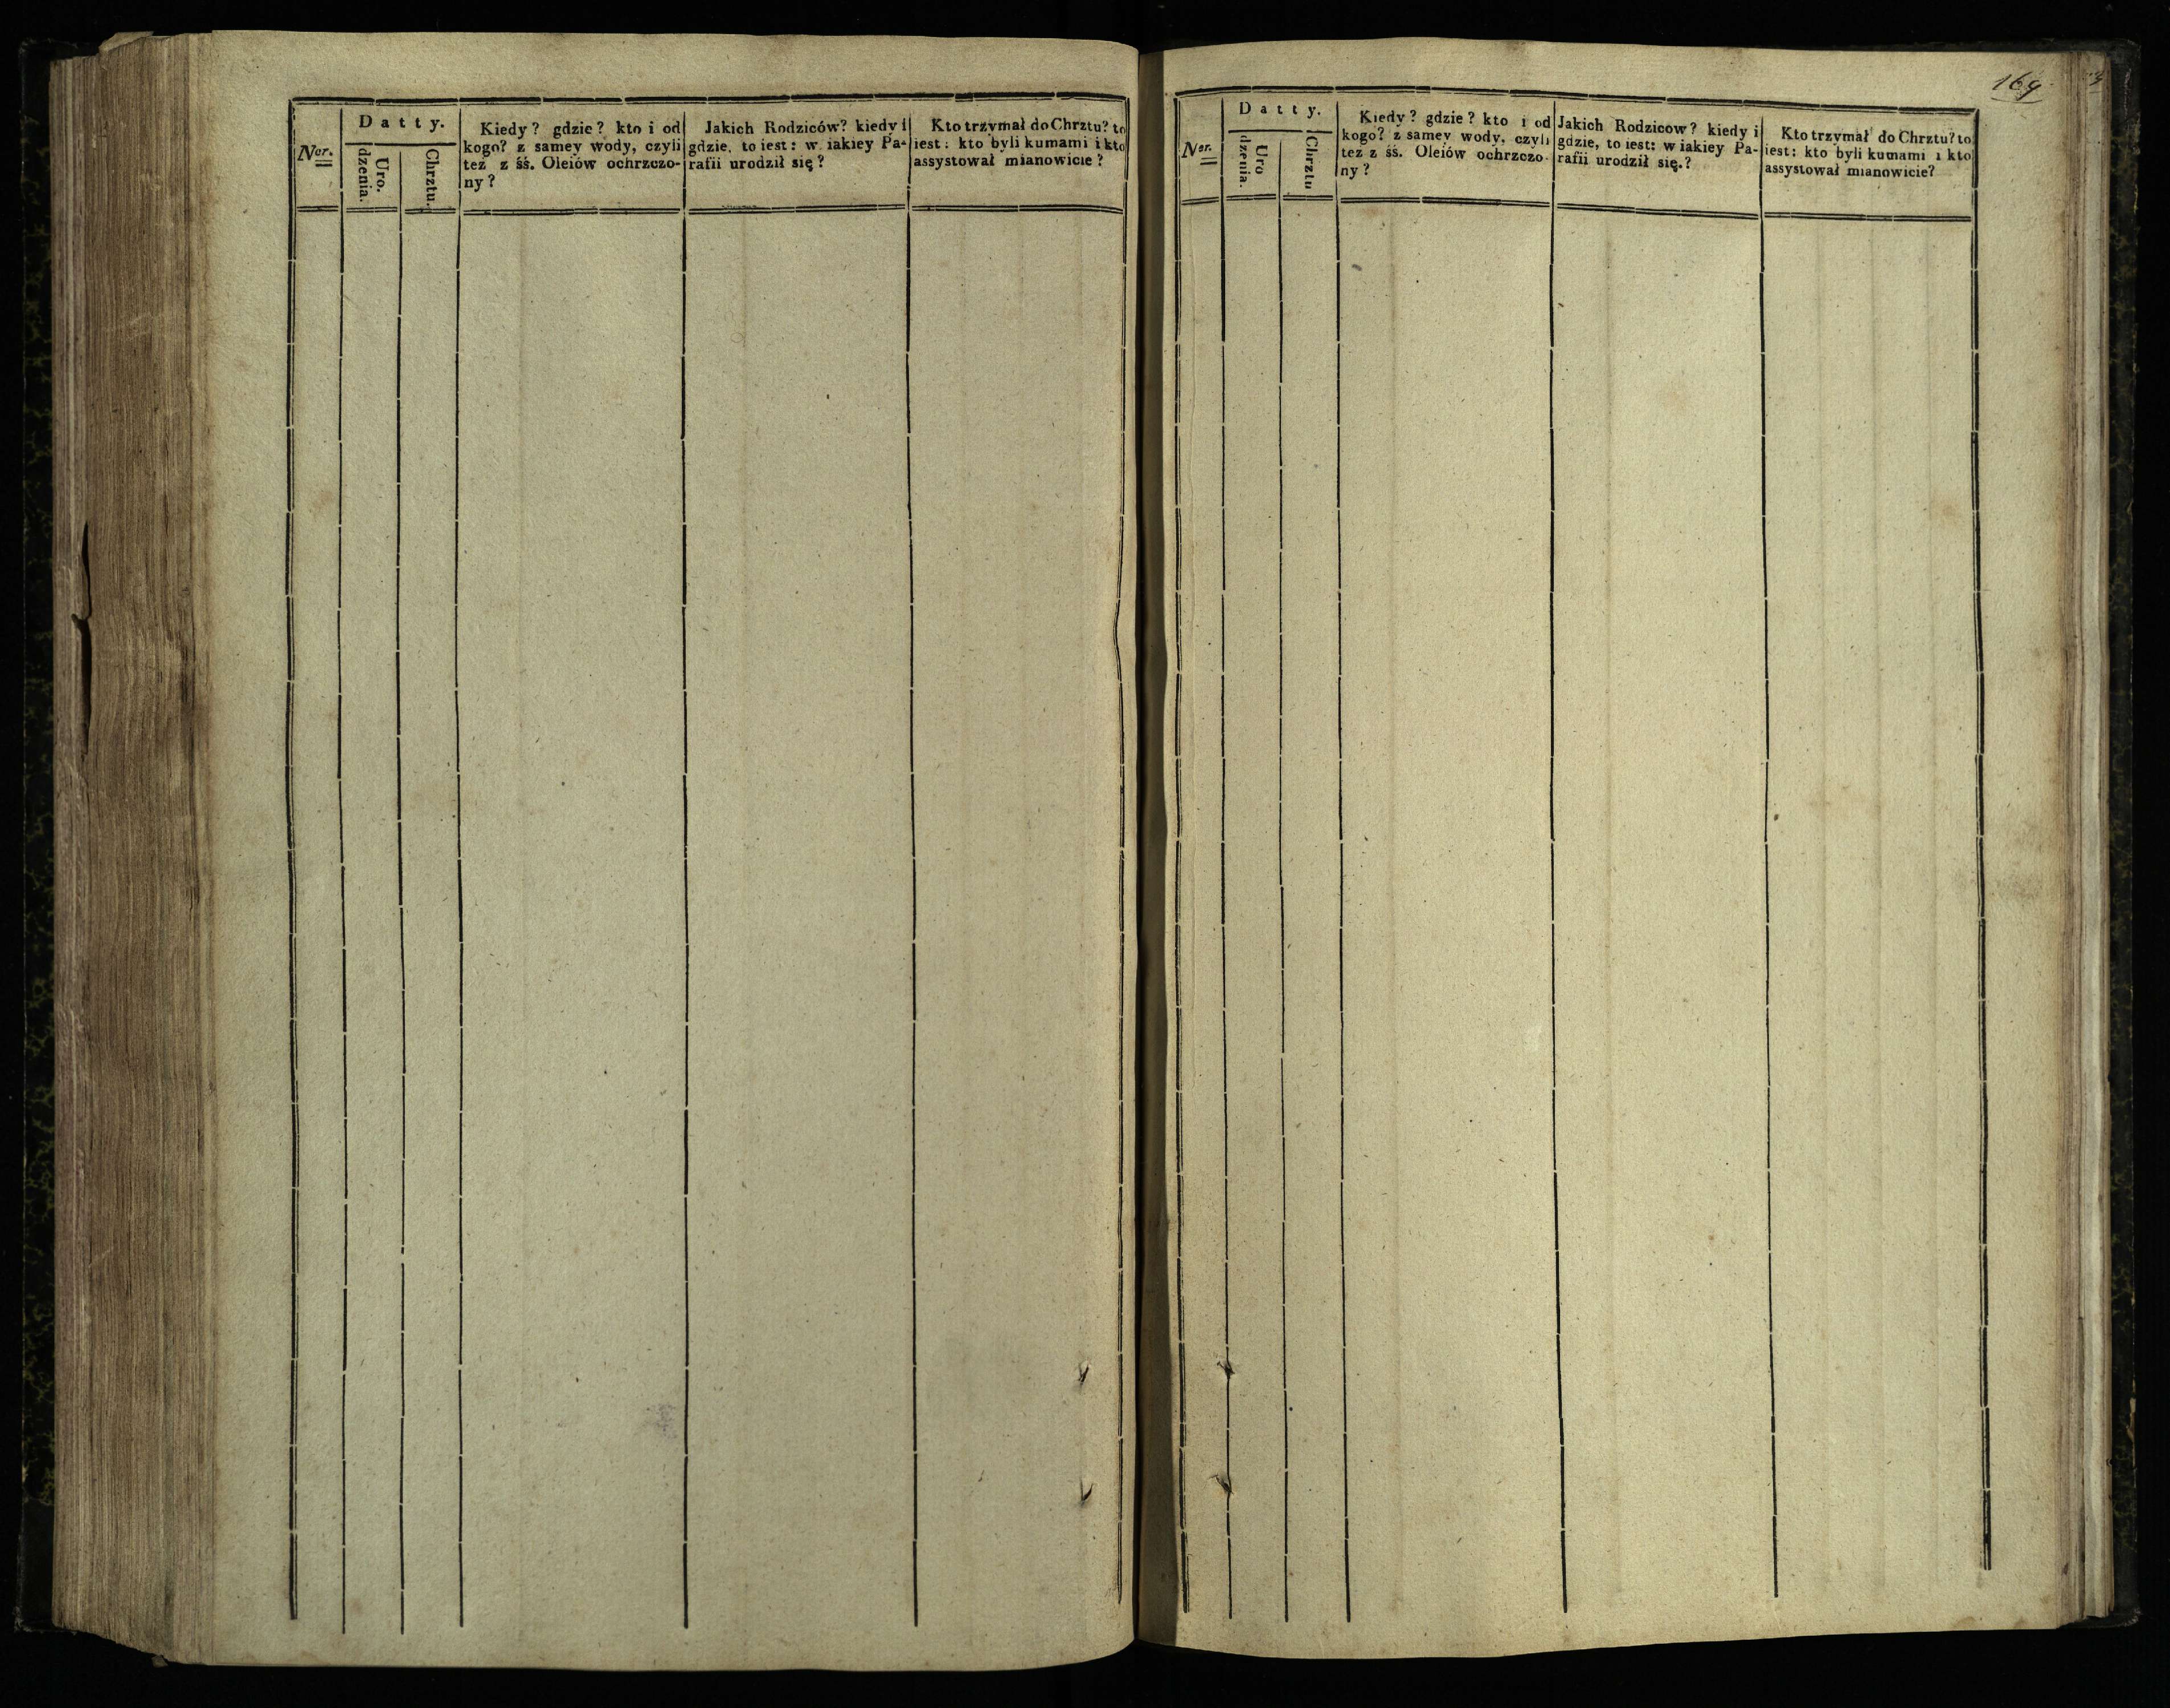 Ner.
Datty.
Uro.
dzenia.
Chrztu.
Kiedy? gdzie? kto i od
kogo? z samey wody, czyli
też z śś. Oleiów ochrzczo-
ny?
Jakich Rodziców? kiedy i
gdzie, to iest: w iakiey Pa-
rafii urodził się?
Kto trzymał do Chrztu? to
iest: kto byli kumami i kto
assystował mianowicie?
169
Ner.
Datty.
Uro
dzenia.
Chrztu
Kiedy? gdzie? kto i od
kogo? z samey wody, czyli
też z śś. Oleiów ochrzczo-
ny?
Jakich Rodzicow? kiedy i
gdzie, to iest: w iakiey Pa-
rafii urodził się.?
Kto trzymał do Chrztu? to
iest: kto byli kumami i kto
assystował mianowicie?